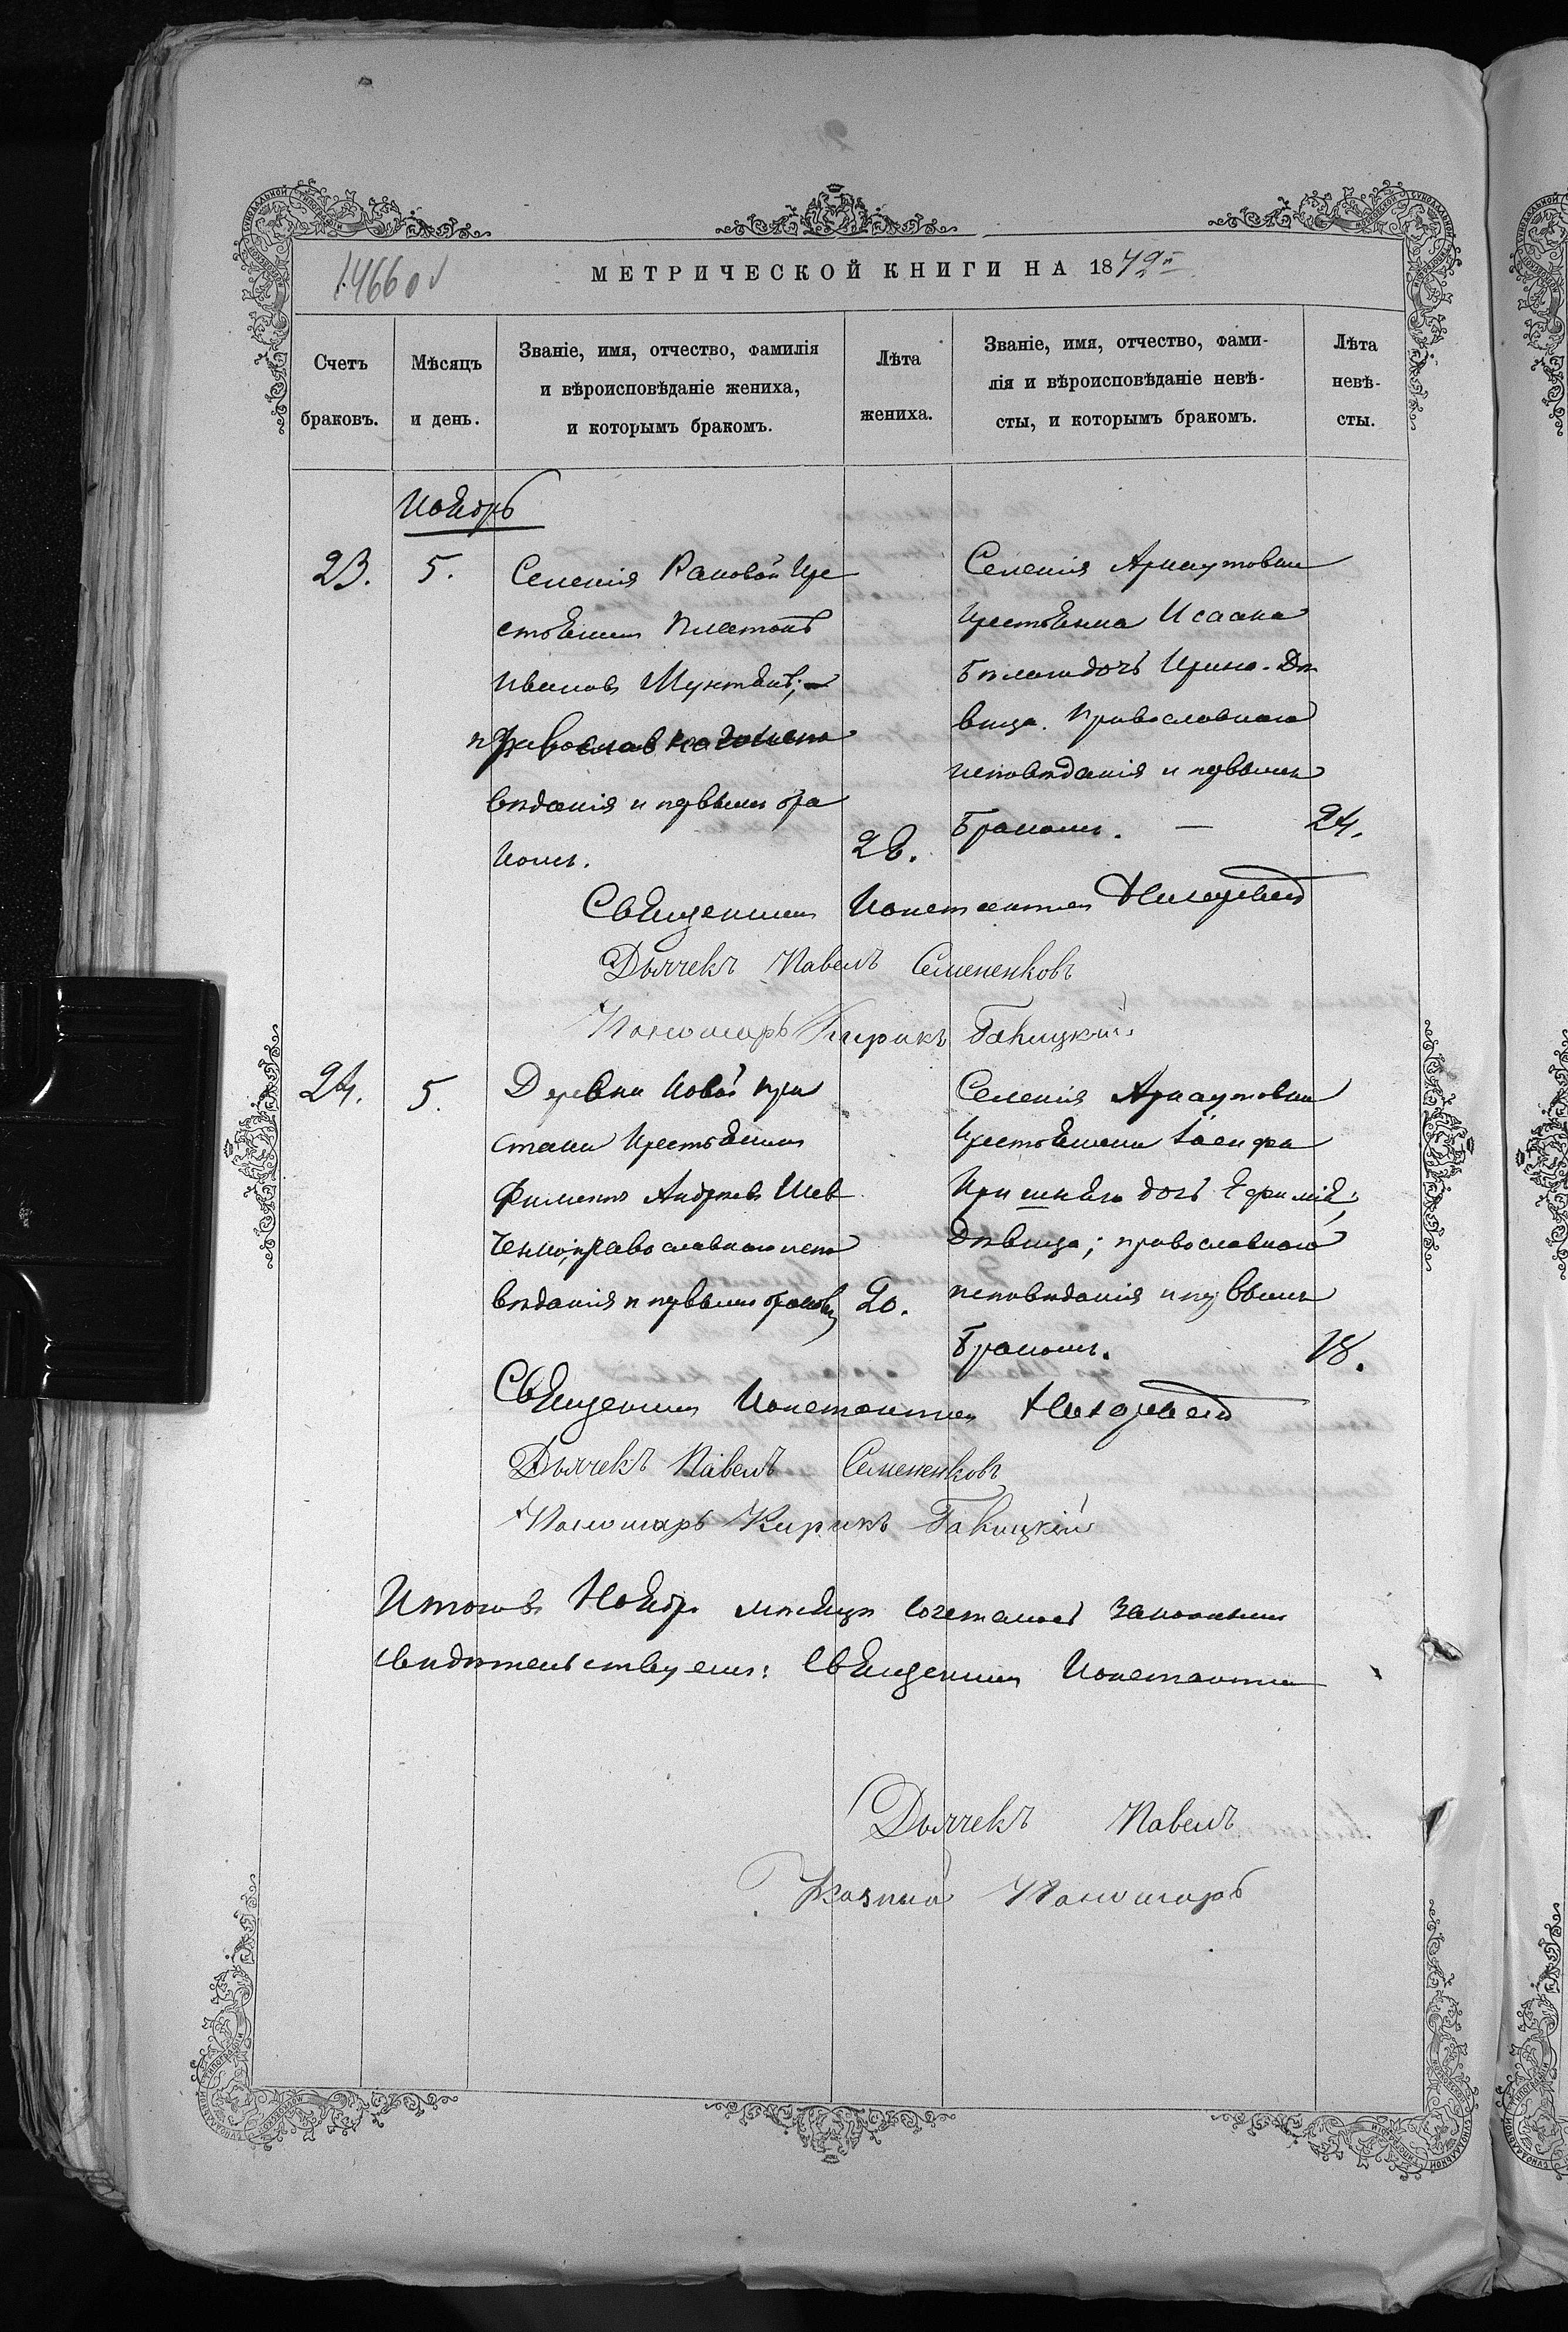 МЕТРИЧЕСКОЙ КНИГИ НА 1872
Счетъ браковъ.
Мѣсяцъ и день.
Званіе, имя, отчество, фамилія
и вѣроисповѣданіе жениха,
и которымъ бракомъ.
Лѣта жениха.
Званіе, имя, отчество, фами-
лія и вѣроисповѣданіе невѣ-
сты, и которымъ бракомъ.
Лѣта невѣ-
сты.
Ноябрь
23.
5.
Селенія Каковой кре
стьянин Платонъ
Иванов Мунтян;
православнаго испо
вѣданія и первым бра
ком.
28.
Селенія Арнаутовки
крестьянина Исаака
дочь Ирина. Дѣ
вица. Православнаго
исповѣданія и первым
браком. —
24.
Священник Константин
Дьячекъ Павелъ Семененковъ
Пономарь Кирикъ Бакицкій
24.
5.
Деревни Новой При
стани крестьянин
Филипп Андреев Шев
ченко, православнаго испо
вѣданія и первым браком
20.
Селенія Арнаутовки
крестьянина Іосифа
дочь Ефимія;
дѣвица; православнаго
исповѣданія и первым
браком.
18.
Священник Константин
Дьячекъ Павелъ Семененковъ
Пономарь Кирикъ Бакицкій
Итого в Ноябрѣ мѣсяцѣ сочеталось законным
свидѣтельствуем: Священник Константин
Дьячекъ Павелъ
Пономарь